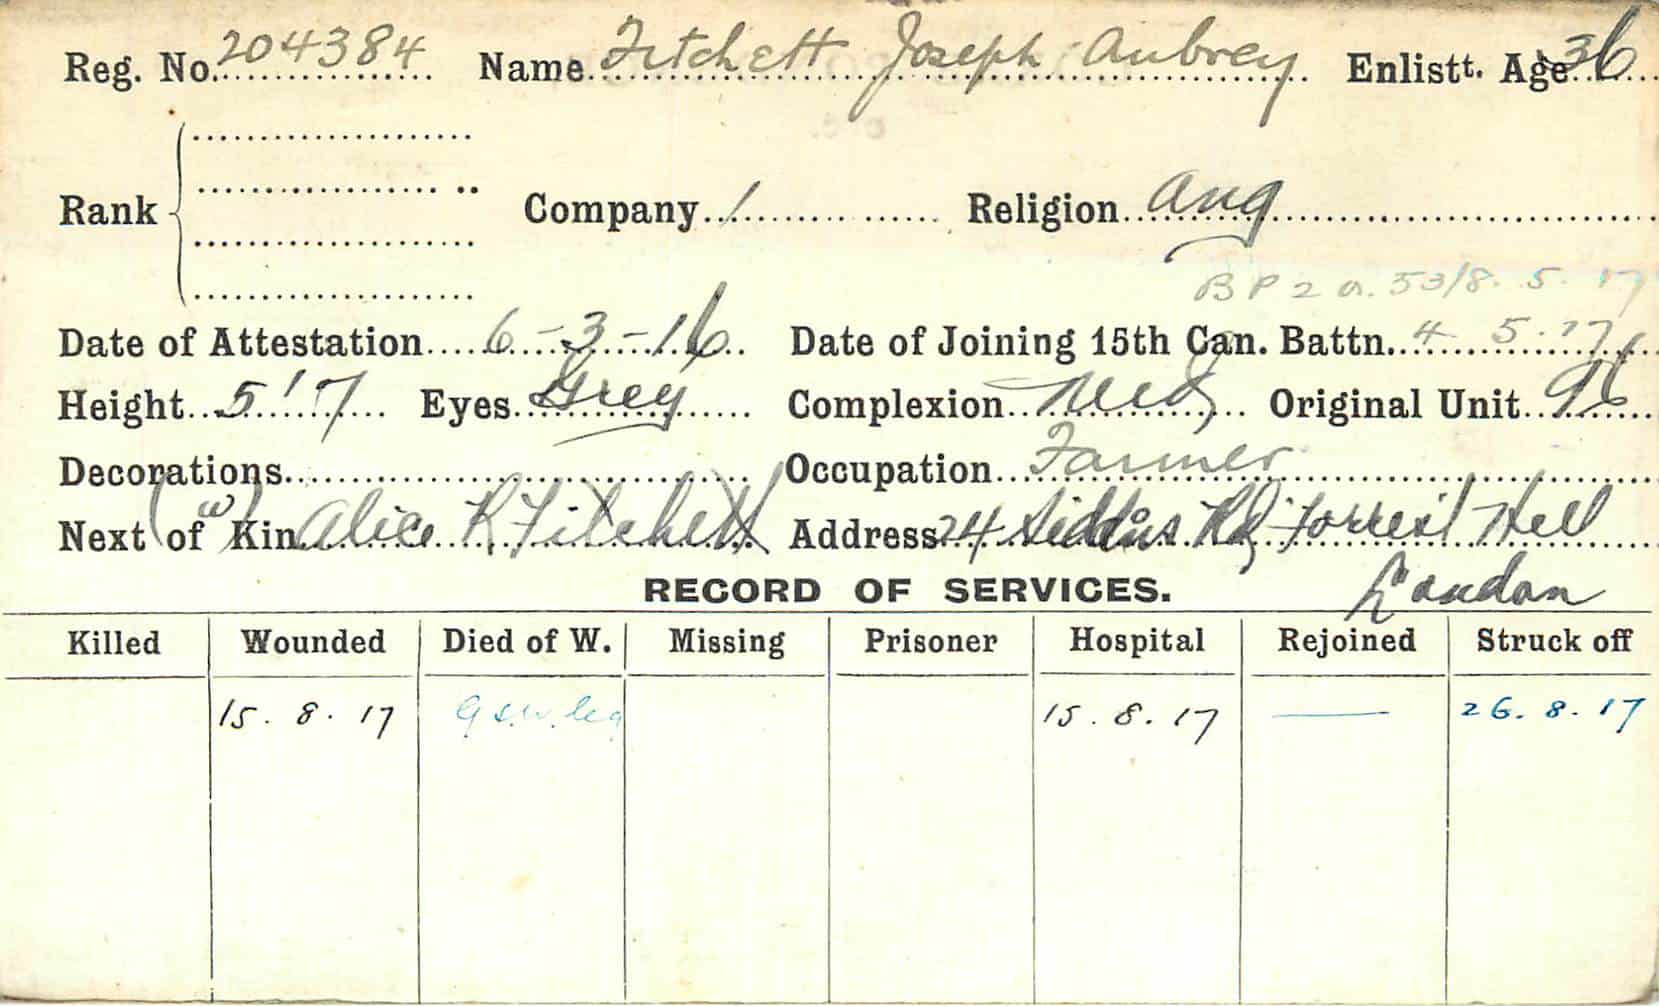 Reg. No. 204384 Name Fitchett Joseph Aubrey Enlistt. Age 36
Rank Company 1 Religion Ang
BP 2 a. 53/8. 5. 17
Date of Attestation 6-3-16 Date of Joining 15th Can. Battn. 4 5.17
Height 5'7 Eyes Grey Complexion Med Original Unit 96
Decorations Occupation Farmer
Next of Kin (w) Alice R Fitchett Address 24 Rd Forrest Hill
London
RECORD OF SERVICES.
Killed Wounded Died of W. Missing Prisoner Hospital Rejoined Struck off
15. 8. 17 G.S.W. leg 15. 8. 17 — 26. 8. 17